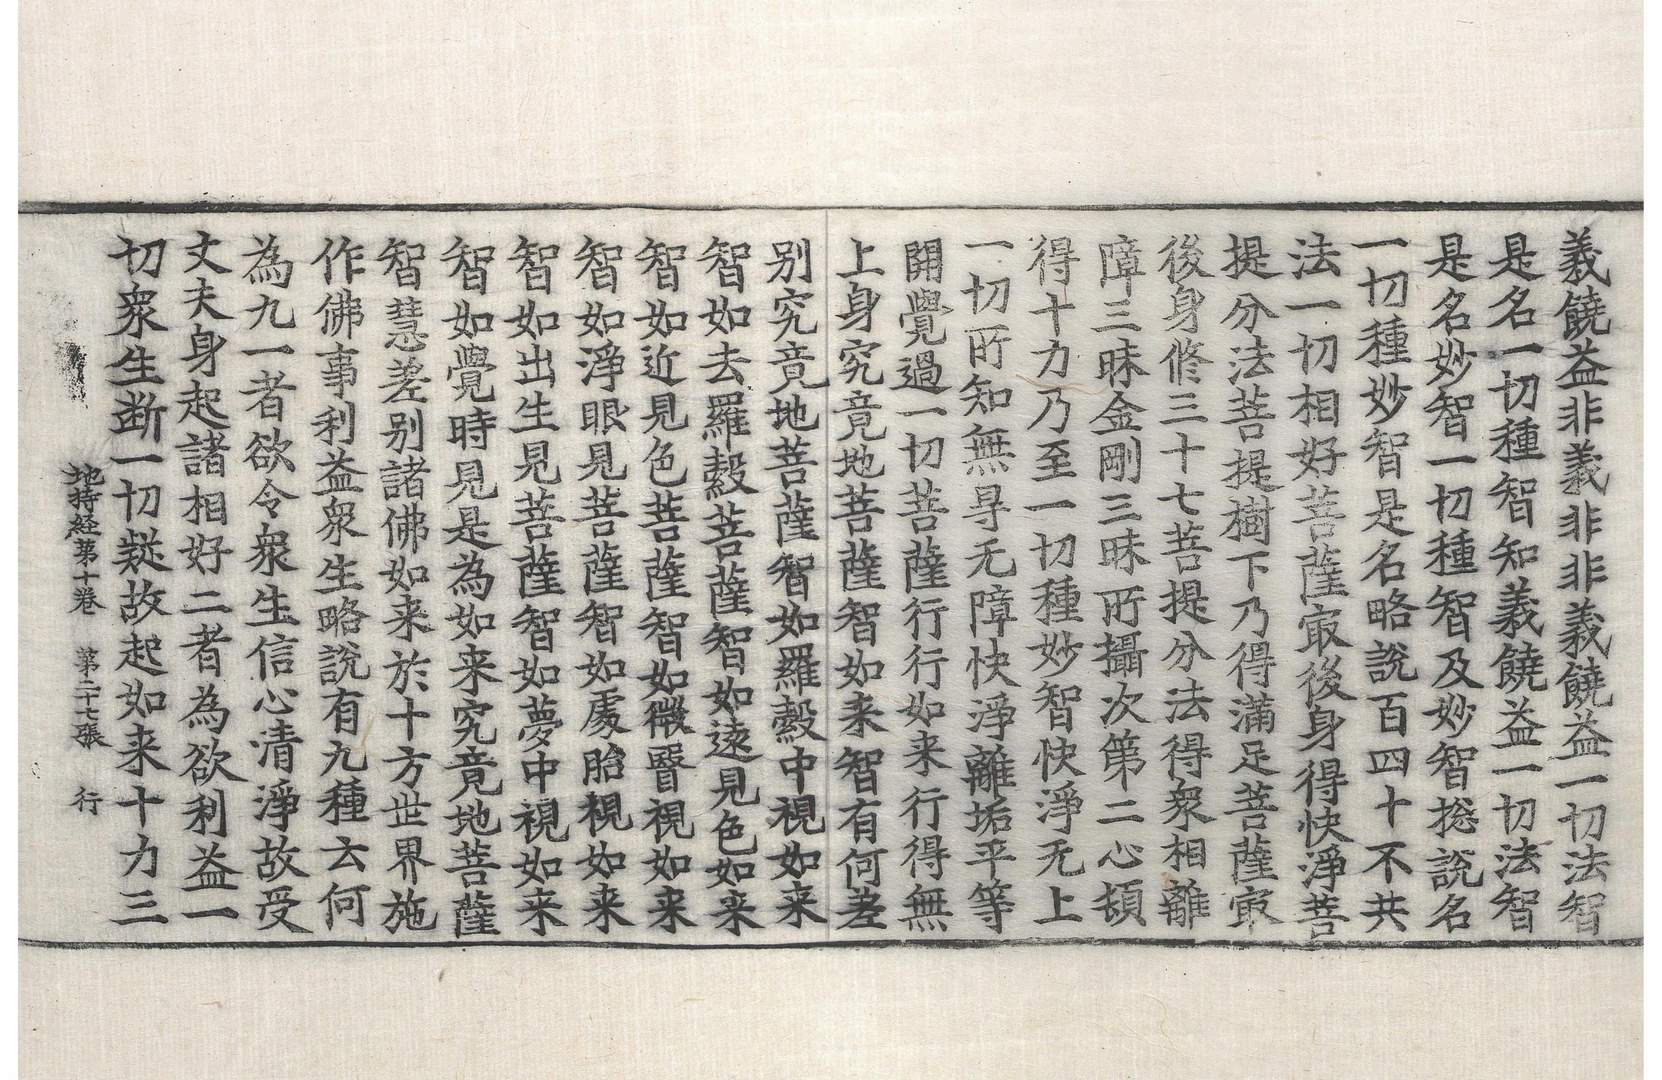 義饒益非義非非義饒益一切法智
是名一切種智知義饒益一切法智
是名妙智一切種智及妙智揔說名
一切種妙智是名略說百四十不共
法一切相好菩薩㝡後身得快淨菩
提分法菩提樹下乃得滿足菩薩㝡
後身修三十七菩提分法得衆相離
障三昧金剛三昧所攝次第二心頓
得十力乃至一切種妙智快淨无上
一切所知無㝵无障快淨離垢平等
開覺過一切菩薩行行如来行得無
上身究竟地菩薩智如来智有何差
别究竟地菩薩智如羅縠中視如来
智如去羅縠菩薩智如遠見色如来
智如近見色菩薩智如微瞖視如来
智如淨眼見菩薩智如處胎視如来
智如出生見菩薩智如夢中視如来
智如覺時見是為如来究竟地菩薩
智慧差别諸佛如来於十方世界施
作佛事利益衆生略說有九種云何
為九一者欲令衆生信心清淨故受
丈夫身起諸相好二者為欲利益一
切衆生断一切疑故起如来十力三
地持経第十卷　第二十七張　行